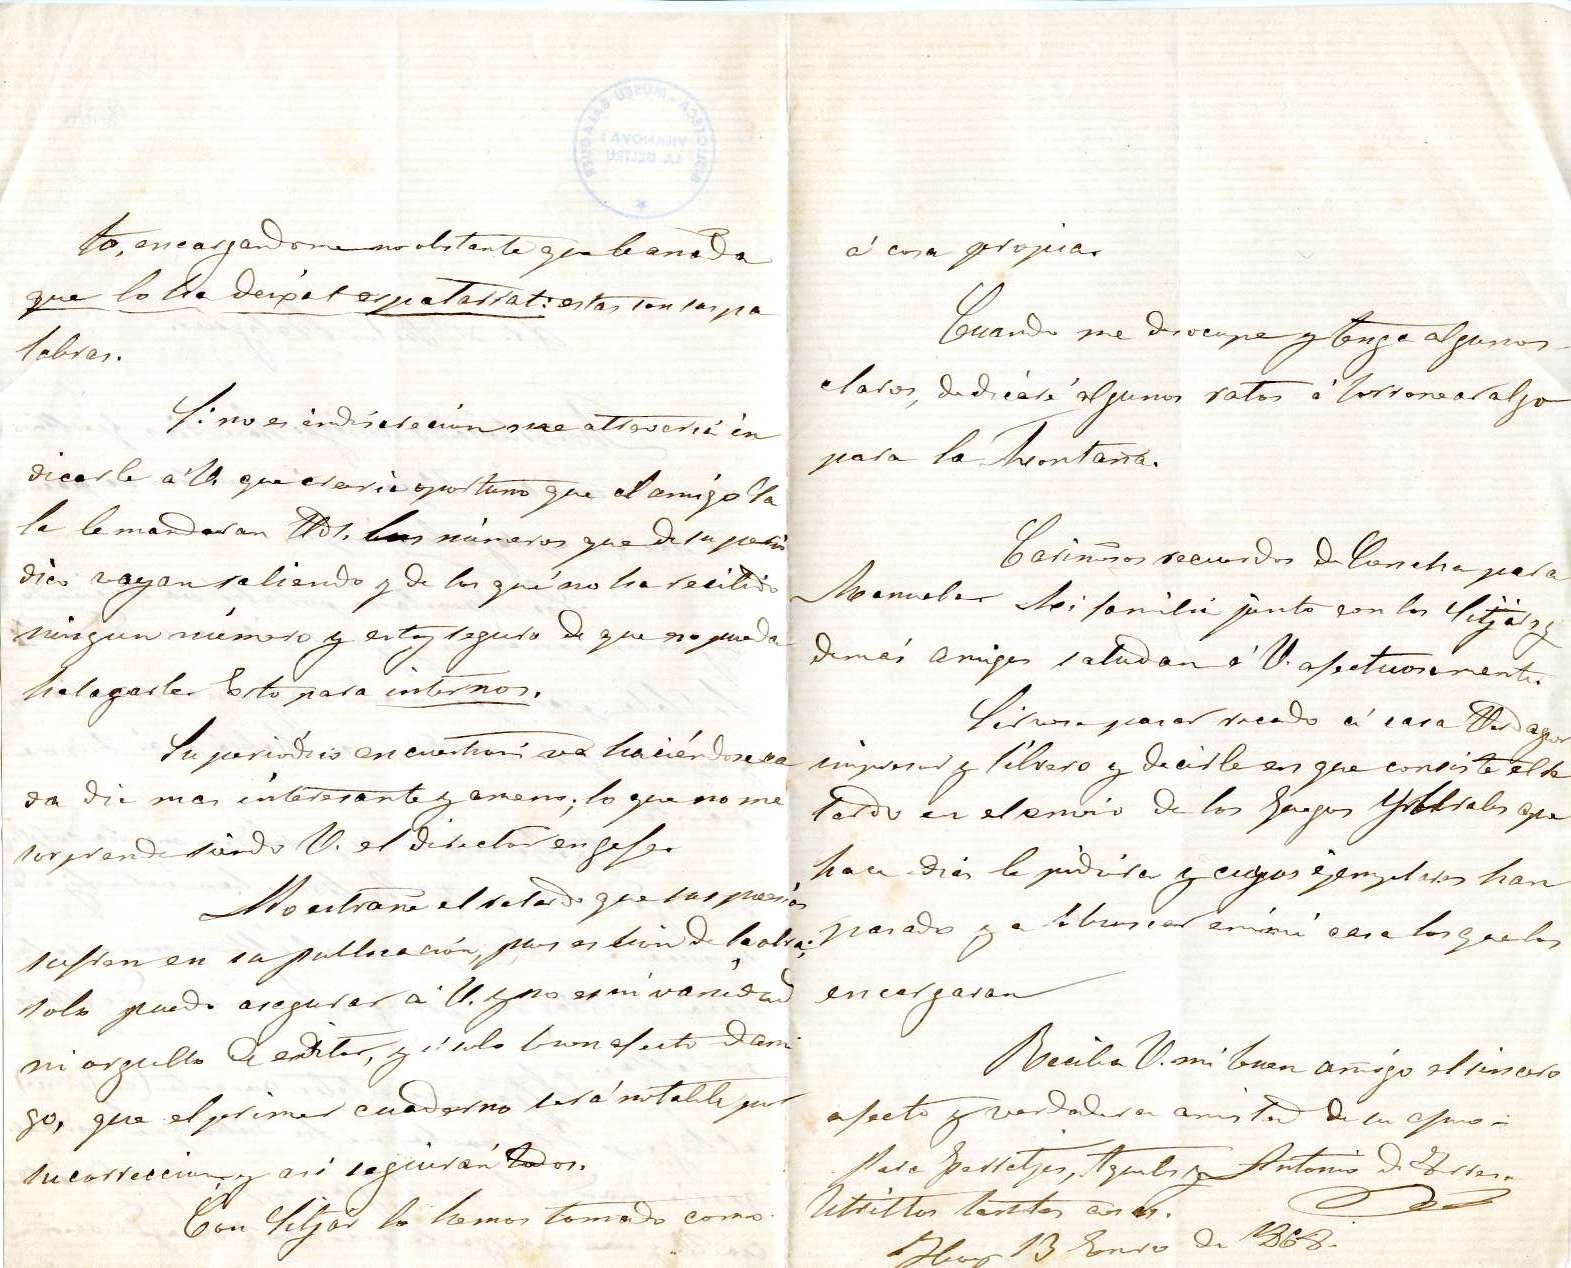 BIBLIOTECA-MUSEU BALAGUER
VILANOVA I
LA GELTRÚ
to, encargandome no obstante que le anada
que lo ha deixat espatarrat: estas son sus pa
labras.
Si no es indiscreción me atreveria in
dicarle á V. que creeria oportuno que al amigo Sa
la le mandaran Vds. los números que de su perió
dico vayan saliendo y de los que no ha recibido
ningun número y estoy seguro de que no pueda
halagarle. Esto para internos.
Su periódico en cuestion va haciéndose ca
da dia mas interesante y ameno; lo que no me
sorprende siendo V. el director en gefe.
No estrañe el retardo que sus poesias
sufren en su publicación, pues es bien de la obra;
solo puedo asegurar á V. y no es ni vanidad
ni orgullo de editor, y si solo buen afecto d'ami
go, que el primer cuaderno será notable por
su correccion y asi seguirán todos.
Con Sitjár lo hemos tomado como
á cosa propia.
Cuando me desocupe y tenga algunos
claros, dedicaré algunos ratos á borronear algo
para la Montaña.
Cariñosos recuerdos de Concha para
Manuela. Mi familia junto con los Sitjár y
demás amigos saludan á V. afectuosamente.
Sirvase pasar recado á casa Verdaguer
impresor y librero y decirle en que consiste el re
tardo en el envio de los Juegos florales que
hace dias le pidiera y cuyos ejemplares han
pasado ya á buscar en mi casa los que los
encargaran
Reciba V. mi buen amigo el sincero
afecto y verdadera amistad de su afmo
Para Ferretjes, Aguiló y Antonio de
Utrillos tantas cosas.
Hoy 13 Enero de 1868.